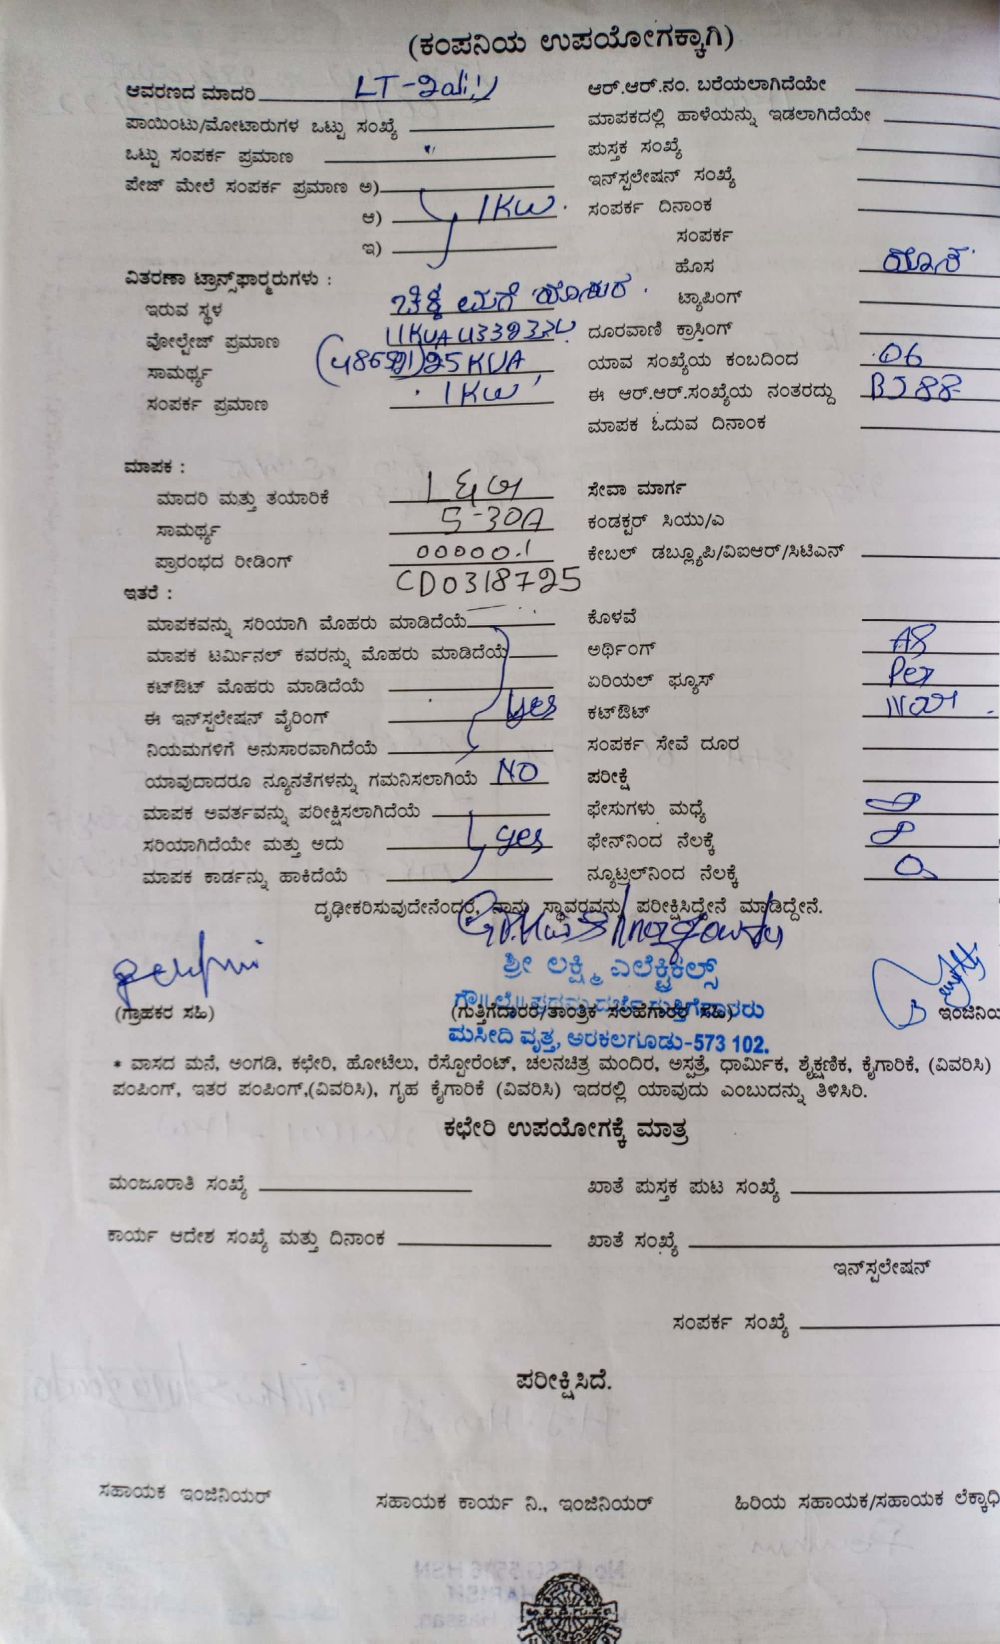 (ಕಂಪನಿಯ ಉಪಯೋಗಕ್ಕಾಗಿ)
ಆವರಣದ ಮಾದರಿ LT-2a(i)
ಪಾಯಿಂಟು/ಮೋಟಾರುಗಳ ಒಟ್ಟು ಸಂಖ್ಯೆ
ಒಟ್ಟು ಸಂಪರ್ಕ ಪ್ರಮಾಣ
ಪೇಜ್ ಮೇಲೆ ಸಂಪರ್ಕ ಪ್ರಮಾಣ ಅ)
ಆ) 1KW.
ಇ)
ವಿತರಣಾ ಟ್ರಾನ್ಸ್‌ಫಾರ್‍ಮರುಗಳು :
ಇರುವ ಸ್ಥಳ ಚಿಕ್ಕ ಮಗೆ ಹೊಸೂರ
ವೋಲ್ಟೇಜ್ ಪ್ರಮಾಣ
ಸಾಮರ್ಥ್ಯ 25KVA
ಸಂಪರ್ಕ ಪ್ರಮಾಣ 1KW
ಆರ್.ಆರ್.ನಂ. ಬರೆಯಲಾಗಿದೆಯೇ
ಮಾಪಕದಲ್ಲಿ ಹಾಳೆಯನ್ನು ಇಡಲಾಗಿದೆಯೇ
ಪುಸ್ತಕ ಸಂಖ್ಯೆ
ಇನ್‌ಸ್ಪಲೇಷನ್ ಸಂಖ್ಯೆ
ಸಂಪರ್ಕ ದಿನಾಂಕ
ಸಂಪರ್ಕ
ಹೊಸ ಹೊಸ
ಟ್ಯಾಪಿಂಗ್
ದೂರವಾಣಿ ಕ್ರಾಸಿಂಗ್
ಯಾವ ಸಂಖ್ಯೆಯ ಕಂಬದಿಂದ 06
ಈ ಆರ್.ಆರ್.ಸಂಖ್ಯೆಯ ನಂತರದ್ದು BJ88
ಮಾಪಕ ಓದುವ ದಿನಾಂಕ
ಮಾಪಕ :
ಮಾದರಿ ಮತ್ತು ತಯಾರಿಕೆ L&G
ಸಾಮರ್ಥ್ಯ 5-30A
ಪ್ರಾರಂಭದ ರೀಡಿಂಗ್ 00000.1
CD0318725
ಸೇವಾ ಮಾರ್ಗ
ಕಂಡಕ್ಟರ್ ಸಿಯು/ಎ
ಕೇಬಲ್ ಡಬ್ಲ್ಯೂಪಿ/ವಿಐಆರ್/ಸಿಟಿಎಸ್
ಇತರೆ :
ಮಾಪಕವನ್ನು ಸರಿಯಾಗಿ ಮೊಹರು ಮಾಡಿದೆಯೆ
ಮಾಪಕ ಟರ್ಮಿನಲ್ ಕವರನ್ನು ಮೊಹರು ಮಾಡಿದೆಯೆ
ಕಟ್‌ಔಟ್ ಮೊಹರು ಮಾಡಿದೆಯೆ
ಈ ಇನ್‌ಸ್ಪಲೇಷನ್ ವೈರಿಂಗ್ yes
ನಿಯಮಗಳಿಗೆ ಅನುಸಾರವಾಗಿದೆಯೆ
ಯಾವುದಾದರೂ ನ್ಯೂನತೆಗಳನ್ನು ಗಮನಿಸಲಾಗಿಯೆ NO
ಮಾಪಕ ಅವರ್ತವನ್ನು ಪರೀಕ್ಷಿಸಲಾಗಿದೆಯೆ
ಸರಿಯಾಗಿದೆಯೇ ಮತ್ತು ಅದು yes
ಮಾಪಕ ಕಾರ್ಡನ್ನು ಹಾಕಿದೆಯೆ
ಕೊಳವೆ
ಅರ್ಥಿಂಗ್ AS
ಏರಿಯಲ್ ಫ್ಯೂಸ್ Per
ಕಟ್‌ಔಟ್
ಸಂಪರ್ಕ ಸೇವೆ ದೂರ
ಪರೀಕ್ಷೆ
ಫೇಸುಗಳು ಮಧ್ಯೆ
ಫೇಸ್‌ನಿಂದ ನೆಲಕ್ಕೆ
ನ್ಯೂಟ್ರಲ್‌ನಿಂದ ನೆಲಕ್ಕೆ
ದೃಢೀಕರಿಸುವುದೇನೆಂದರೆ, ನಾನು ಸ್ಥಾವರವನ್ನು ಪರೀಕ್ಷಿಸಿದ್ದೇನೆ ಮಾಡಿದ್ದೇನೆ.
ಶ್ರೀ ಲಕ್ಷ್ಮಿ ಎಲೆಕ್ಟ್ರಿಕಲ್ಸ್
(ಗ್ರಾಹಕರ ಸಹಿ) (ಗುತ್ತಿಗೆದಾರರ/ತಾಂತ್ರಿಕ ಸಲಹೆಗಾರರ ಸಹಿ) ಇಂಜಿನಿಯ
ಮಸೀದಿ ವೃತ್ತ, ಅರಕಲಗೂಡು-573 102.
* ವಾಸದ ಮನೆ, ಅಂಗಡಿ, ಕಛೇರಿ, ಹೋಟೆಲು, ರೆಸ್ಟೋರೆಂಟ್, ಚಲನಚಿತ್ರ ಮಂದಿರ, ಅಸ್ಪತ್ರೆ, ಧಾರ್ಮಿಕ, ಶೈಕ್ಷಣಿಕ, ಕೈಗಾರಿಕೆ, (ವಿವರಿಸಿ)
ಪಂಪಿಂಗ್, ಇತರ ಪಂಪಿಂಗ್,(ವಿವರಿಸಿ), ಗೃಹ ಕೈಗಾರಿಕೆ (ವಿವರಿಸಿ) ಇದರಲ್ಲಿ ಯಾವುದು ಎಂಬುದನ್ನು ತಿಳಿಸಿರಿ.
ಕಛೇರಿ ಉಪಯೋಗಕ್ಕೆ ಮಾತ್ರ
ಮಂಜೂರಾತಿ ಸಂಖ್ಯೆ ಖಾತೆ ಪುಸ್ತಕ ಪುಟ ಸಂಖ್ಯೆ
ಕಾರ್ಯ ಆದೇಶ ಸಂಖ್ಯೆ ಮತ್ತು ದಿನಾಂಕ ಖಾತೆ ಸಂಖ್ಯೆ
ಇನ್‌ಸ್ಪಲೇಷನ್
ಸಂಪರ್ಕ ಸಂಖ್ಯೆ
ಪರೀಕ್ಷಿಸಿದೆ.
ಸಹಾಯಕ ಇಂಜಿನಿಯರ್ ಸಹಾಯಕ ಕಾರ್ಯ ನಿ., ಇಂಜಿನಿಯರ್ ಹಿರಿಯ ಸಹಾಯಕ/ಸಹಾಯಕ ಲೆಕ್ಕಾಧಿ